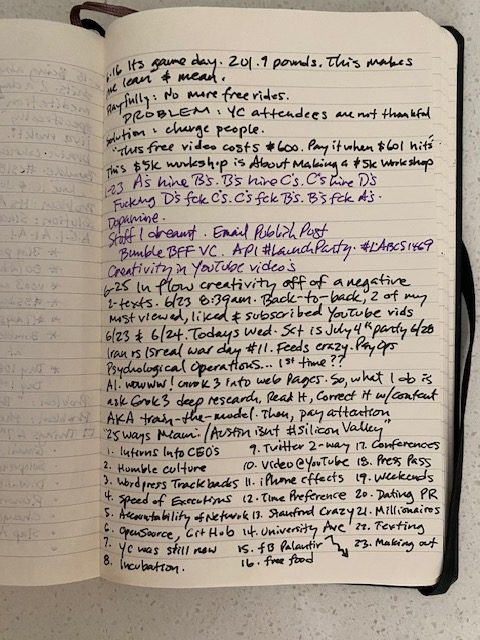 6.16 Its game day. 201.9 pounds. This makes
me lean & mean.
Playfully: No more free rides.
PROBLEM: YC attendees are not thankful
Solution: charge people.
"This free video costs $600. Pay it when $601 hits"
This $5k workshop is About Making a $5k Workshop
6-23 A's hire B's. B's hire C's. C's hire D's
Fucking D's fck C's. C's fck B's. B's fck A's.
Dopamine.
Stuff I dreamt. Email Publish Post
Bumble BFF VC. API #LaunchParty. #LABCS1469
Creativity in YouTube video's
6-25 In flow creativity off of a negative
2-texts. 6/23 8:39am. Back-to-back, 2 of my
most viewed, liked & subscribed YouTube vids
6/23 & 6/24. Todays Wed. Sat is July 4th party 6/28
Iran vs Isreal war day #11. Feeds crazy. PsyOps
Psychological Operations... 1st time??
AI. wowww! Grok 3 into web pages. So, what I do is
ask Grok 3 deep research, Read It, Correct it w/context
AKA train-the-model. Then, pay attention
"25 ways Miami/Austin isnt #Silicon Valley"
1. Interns Into CEO's 9. Twitter 2-way 17. Conferences
2. Humble culture 10. Video@YouTube 18. Press Pass
3. Wordpress Trackbacks 11. iPhone effects 19. Weekends
4. Speed of Executions 12. Time Preference 20. Dating PR
5. Accountability of Network 13. Stanford Crazy 21. Millionaires
6. OpenSource, GitHub 14. University Ave 22. Texting
7. YC was still new 15. fB Palantir 23. Making out
8. Incubation. 16. free food